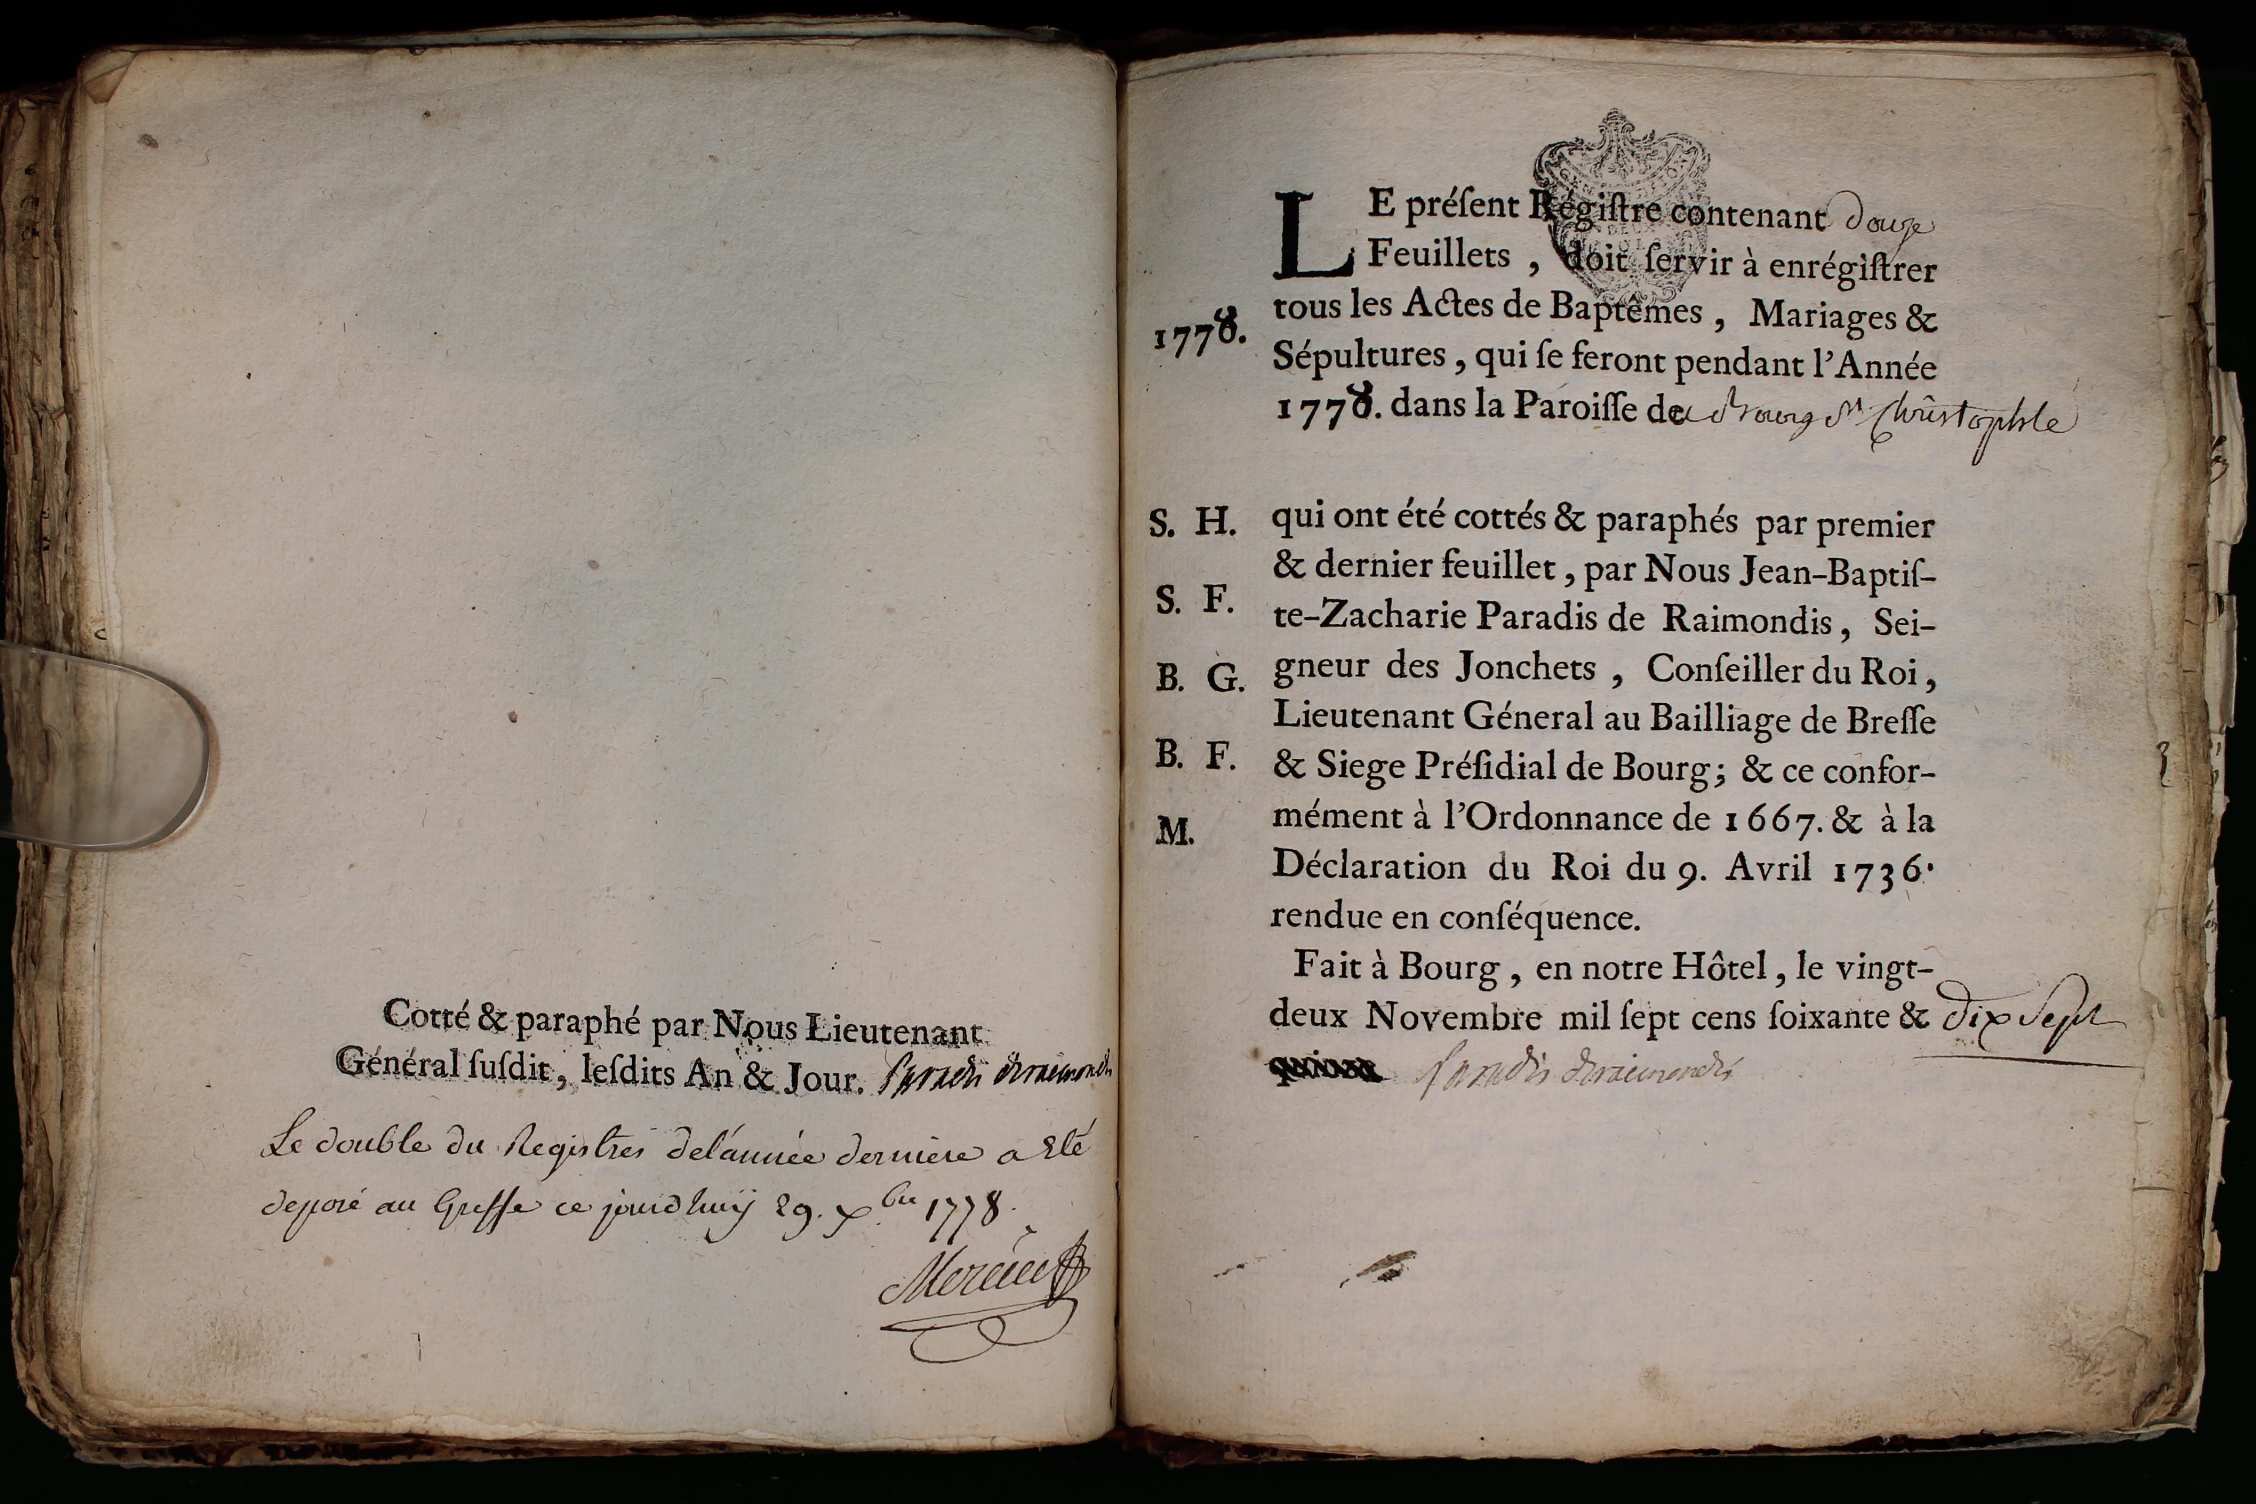 Cotté & paraphé par Nous Lieutenant
Général ſuſdit, leſdits An & Jour. Paradis deraimondis
Le double du Registres del'année derniere a Eté
deposé au Greffe ce jourd huÿ 29. xbre 1778.
1778.
S. H.
S. F.
B. G.
B. F.
M.
LE préſent Régiſtre contenant douze
Feuillets, doit ſervir à enrégiſtrer
tous les Actes de Baptêmes, Mariages &
Sépultures, qui ſe feront pendant l'Année
1778. dans la Paroiſſe de Bourg St Christophle
qui ont été cottés & paraphés par premier
& dernier feuillet, par Nous Jean-Baptiſ-
te-Zacharie Paradis de Raimondis, Sei-
gneur des Jonchets, Conſeiller du Roi,
Lieutenant Géneral au Bailliage de Breſſe
& Siege Préſidial de Bourg; & ce confor-
mément à l'Ordonnance de 1667. & à la
Déclaration du Roi du 9. Avril 1736.
rendue en conſéquence.
Fait à Bourg, en notre Hôtel, le vingt-
deux Novembre mil ſept cens ſoixante & dix Sept
Paradis deraimondis